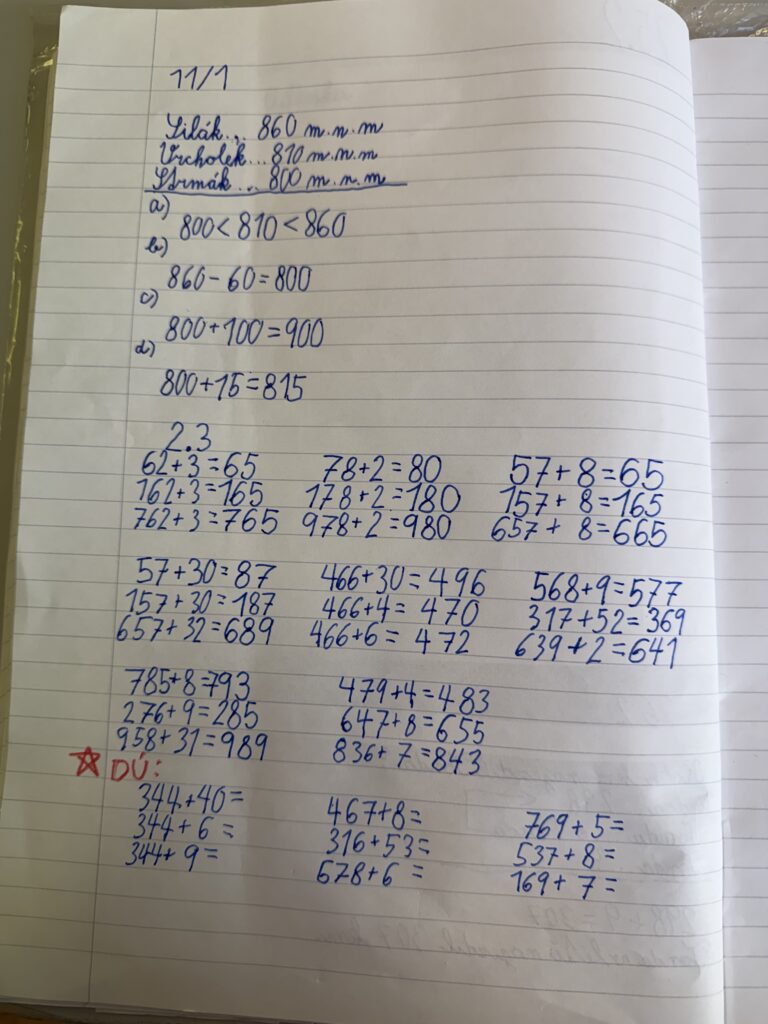 11/1
Silák... 860 m.n.m
Vrcholek... 810 m.n.m
Strmák... 800 m.n.m
a)
800<810<860
b)
860-60=800
c)
800+100=900
d)
800+15=815
2.3
62+3=65 78+2=80 57+8=65
162+3=165 178+2=180 157+8=165
762+3=765 978+2=980 657+8=665
57+30=87 466+30=496 568+9=577
157+30=187 466+4=470 317+52=369
657+32=689 466+6=472 639+2=641
785+8=793 479+4=483
276+9=285 647+8=655
958+31=989 836+7=843
DÚ:
344+40= 467+8= 769+5=
344+6= 316+53= 537+8=
344+9= 678+6= 169+7=